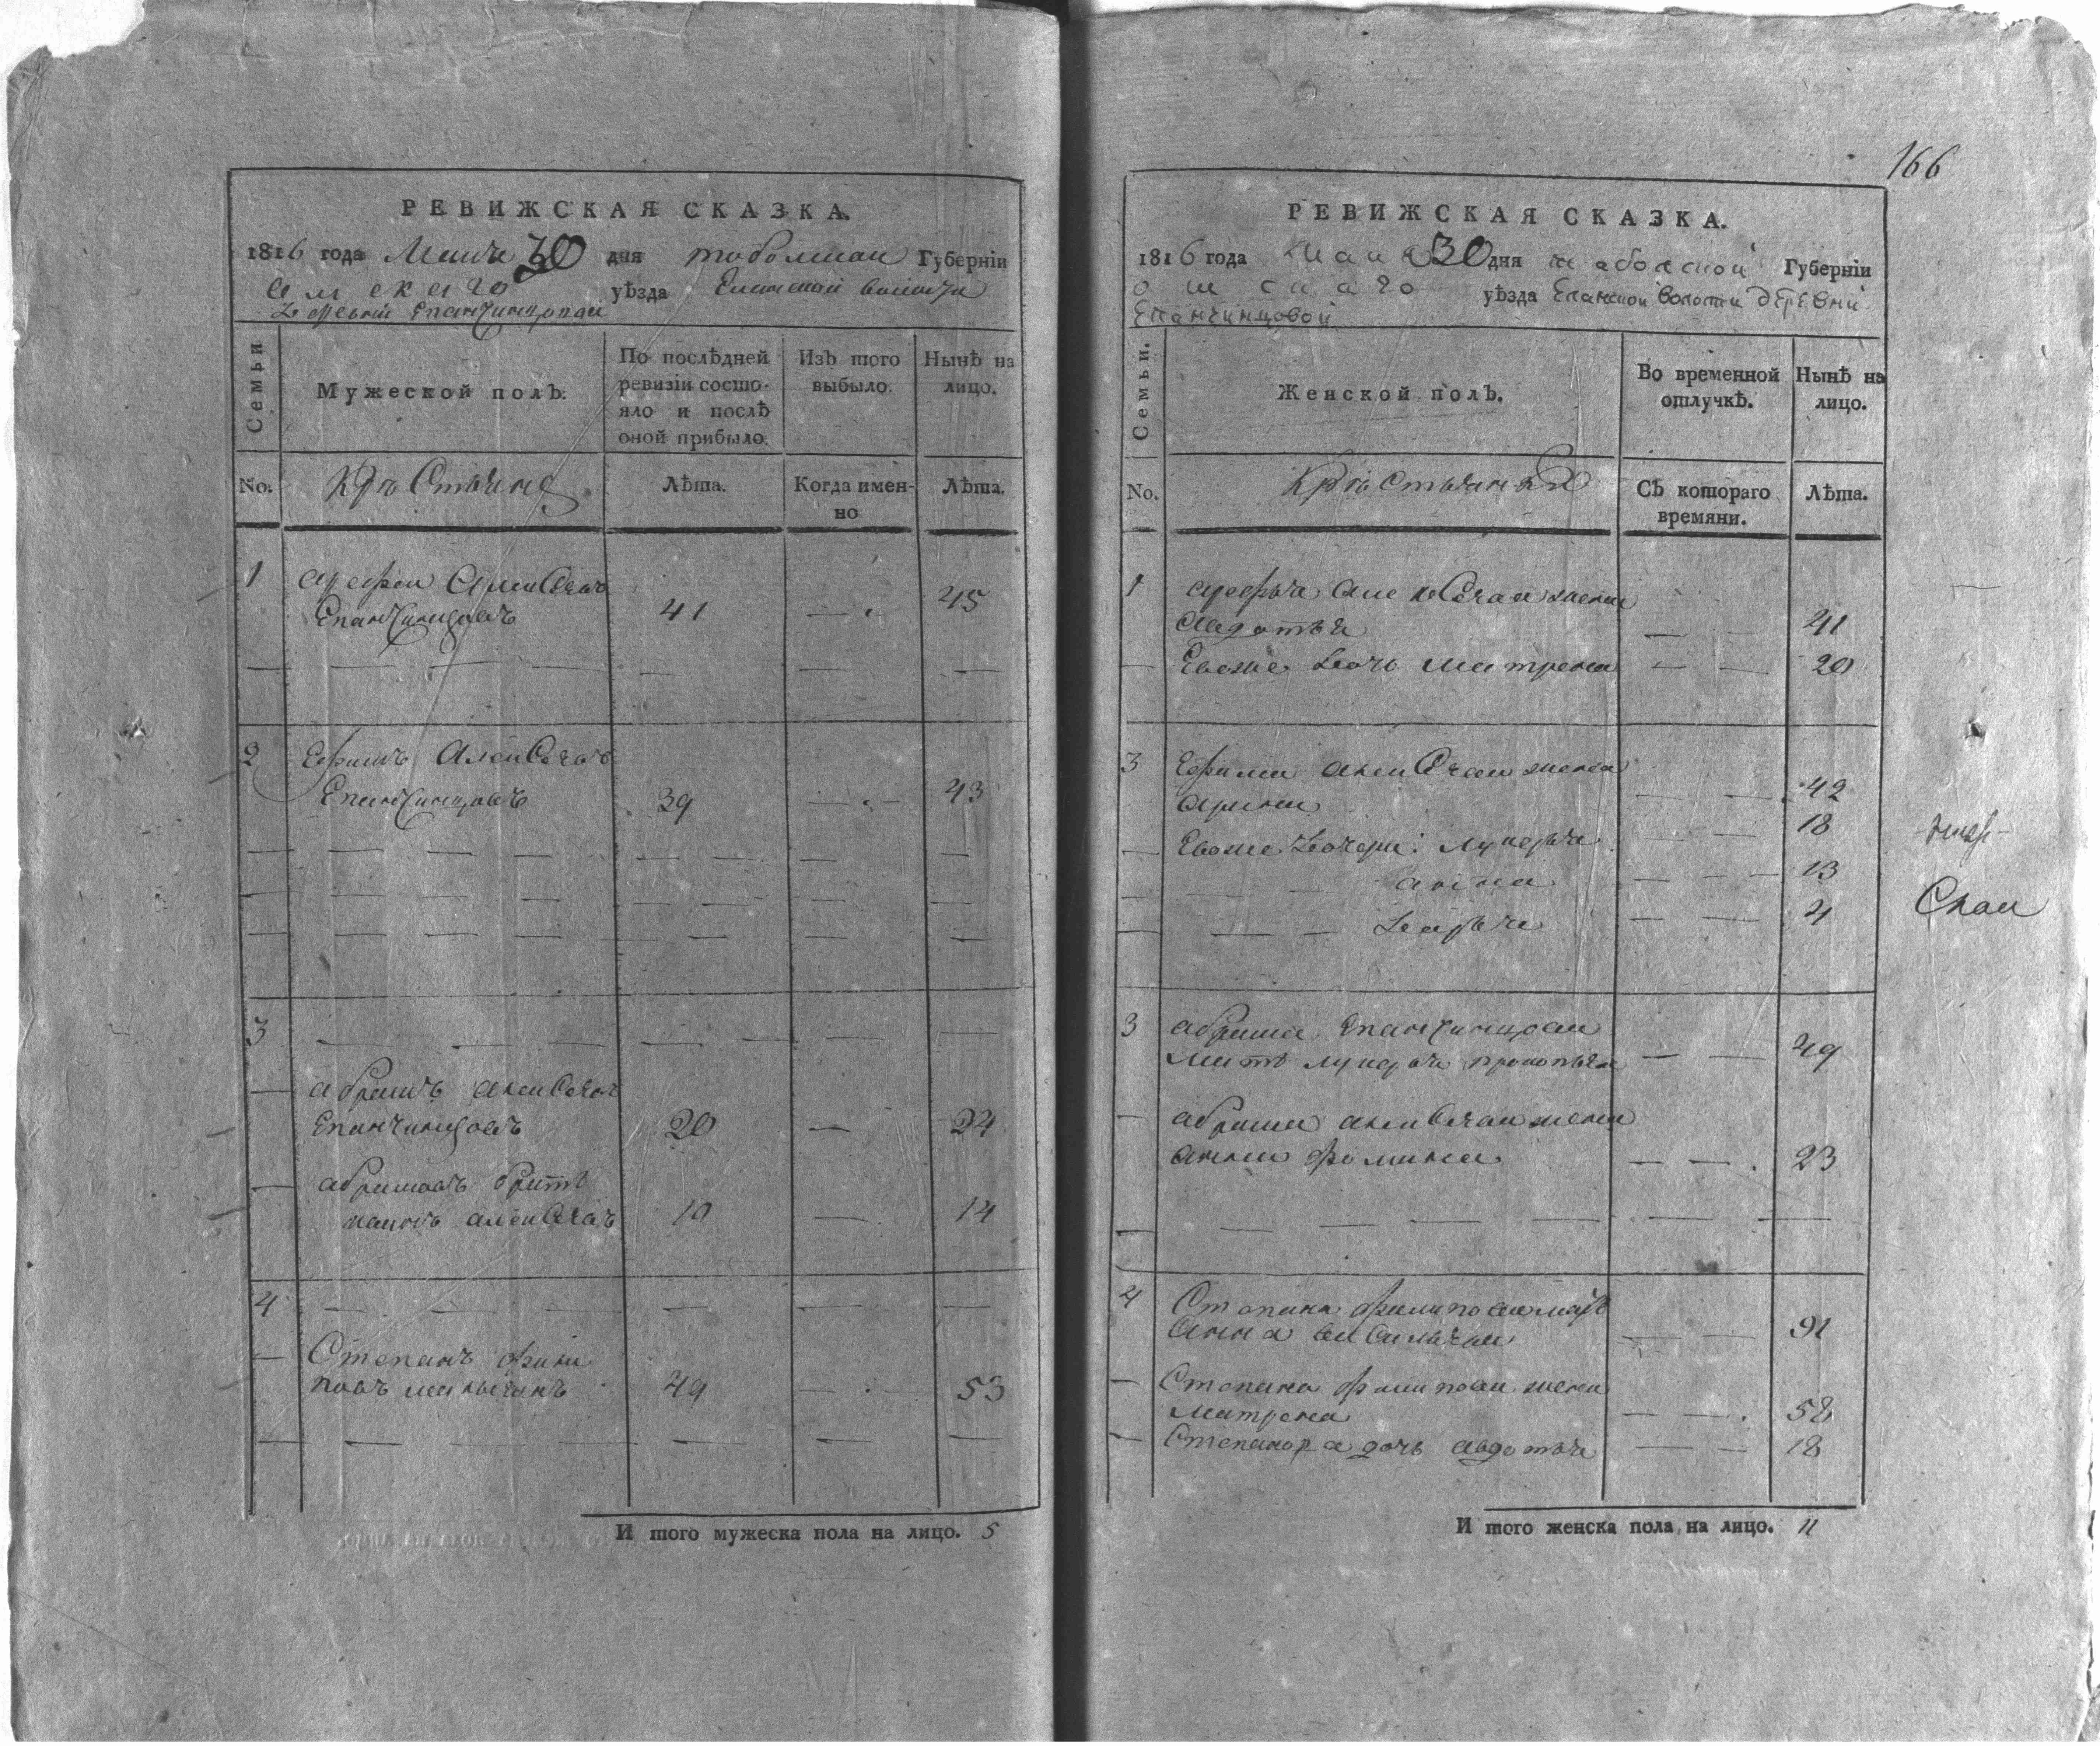 РЕВИЖСКАЯ СКАЗКА.
1816 года Маия 30 дня тобольской Губерніи
омскаго уѣзда Еланской волости
деревни Епанчинцовой
Семьи
Мужеской полъ.
По послѣдней
ревизіи состо-
яло и послѣ
оной прибыло.
Изъ того
выбыло.
Нынѣ на
лицо.
No.
Крѣстьяне
Лѣта.
Когда имен-
но
Лѣта.
1 арефеи Алексѣевъ
Епанчинцовъ 41 45
2 Ефимъ Алексѣевъ
Епанчинцовъ 39 43
3
абрамъ алексѣевъ
Епанчинцовъ 20 24
абрамовъ братъ
алексѣевъ 10 14
4
Степанъ фили
повъ 49 53
И того мужеска пола на лицо. 5
166
РЕВИЖСКАЯ СКАЗКА.
1816 года Маия 30 дня тобольской Губерніи
омскаго уѣзда Еланской волости деревни
Епанчинцовой
Семьи.
Женской полъ.
Во временной
отлучкѣ.
Нынѣ на
лицо.
No.
Крѣстьянки
Съ котораго
времяни.
Лѣта.
1 арефья алексѣева жена
авдотья 41
Евоже дочь матрена 20
3 Ефима алексѣева жена
арина 42
Евоже дочери: лукерья 18
анна 13
дарья 4
3 абрама Епанчинцова
мать лукерья прокопьева 49
абрама алексѣева жена
анна фомина 23
4 Степана филипова мать
анна васильева 91
Степана филипова жена
матрена 58
Степанова дочь авдотья 18
И того женска пола на лицо. 11